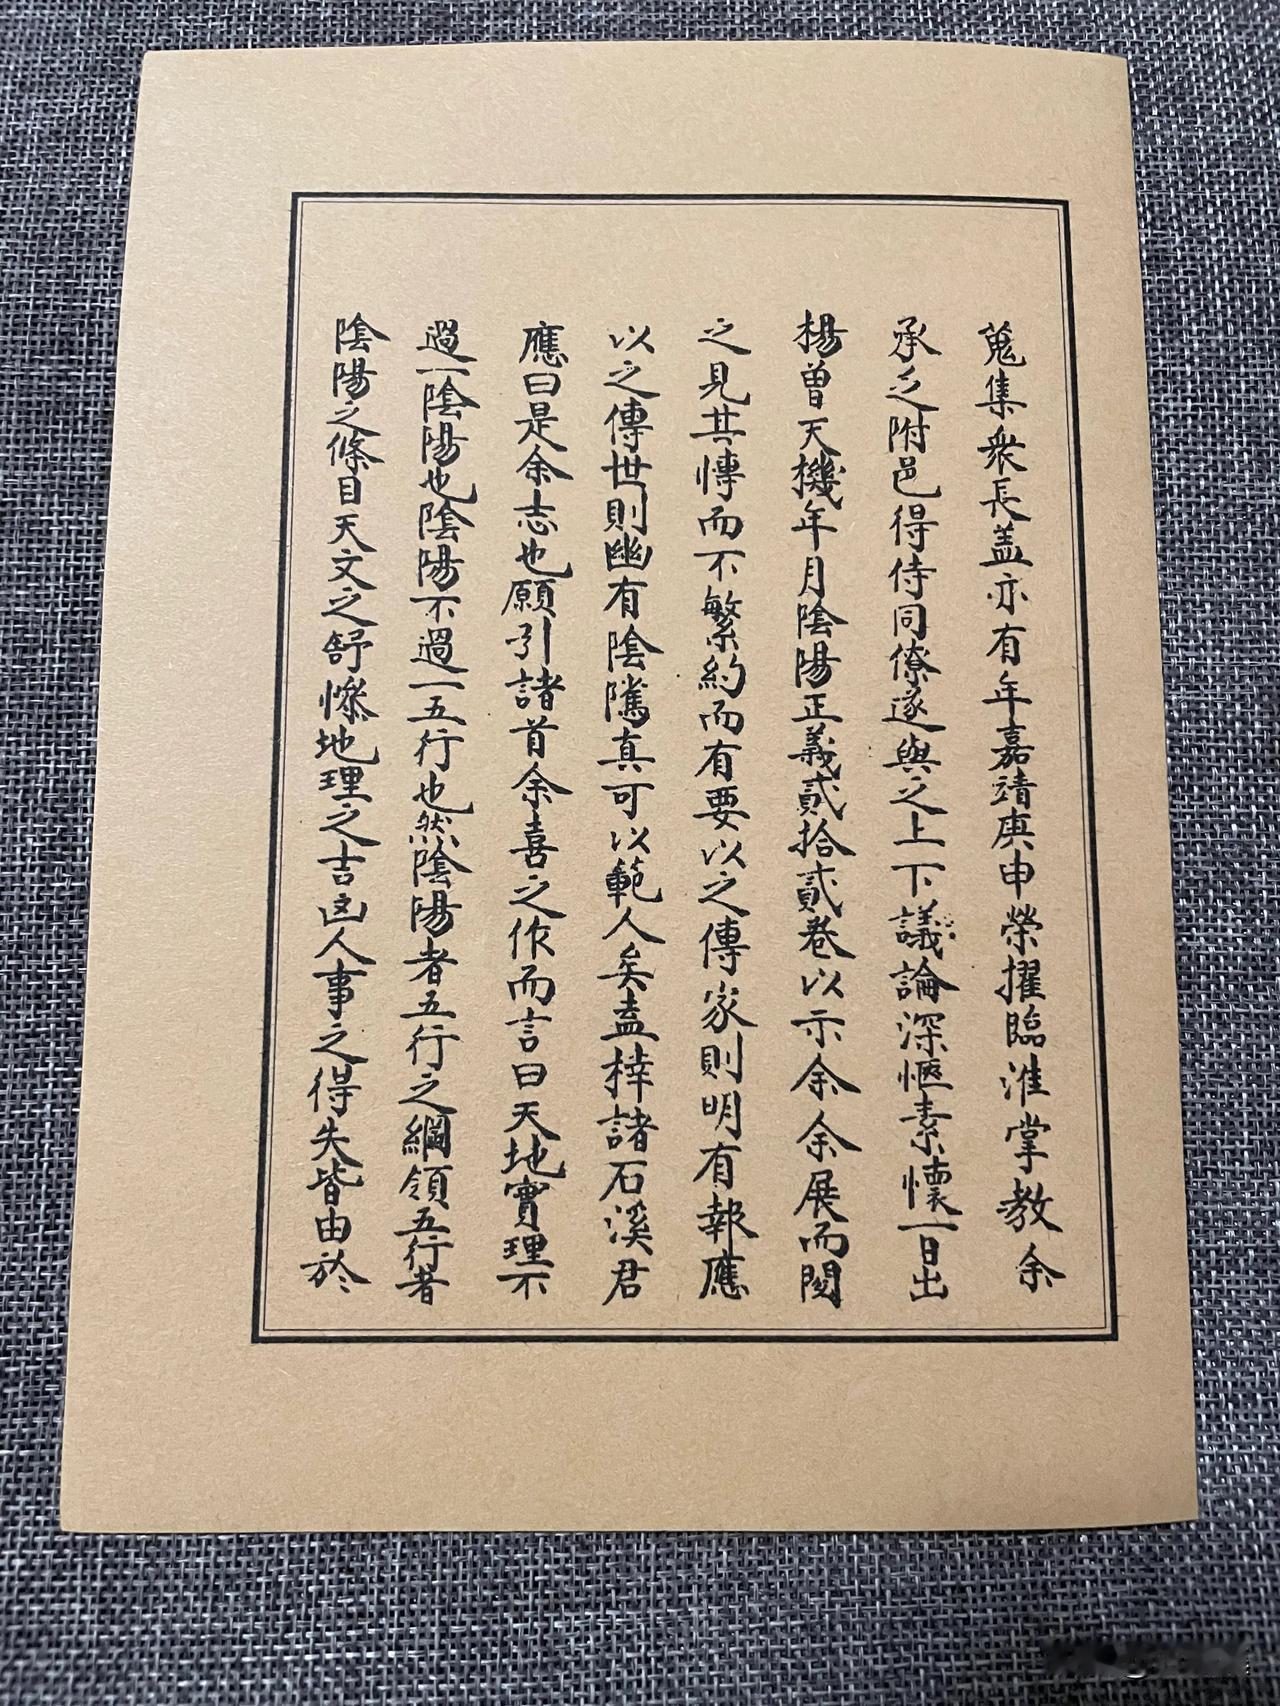 蒐集衆長盖亦有年嘉靖庚申榮擢臨淮掌教余
承乏附邑得侍同僚遂與之上下議論深愜素懷一日出
楊曾天機年月陰陽正義貳拾貳卷以示余余展而閱
之見其慱而不繁約而有要以之傳家則明有報應
以之傳世則幽有陰隲真可以範人矣盍梓諸石溪君
應曰是余志也願引諸首余喜之作而言曰天地實理不
過一陰陽也陰陽不過一五行也然陰陽者五行之綱領五行者
陰陽之條目天文之舒慘地理之吉凶人事之得失皆由於